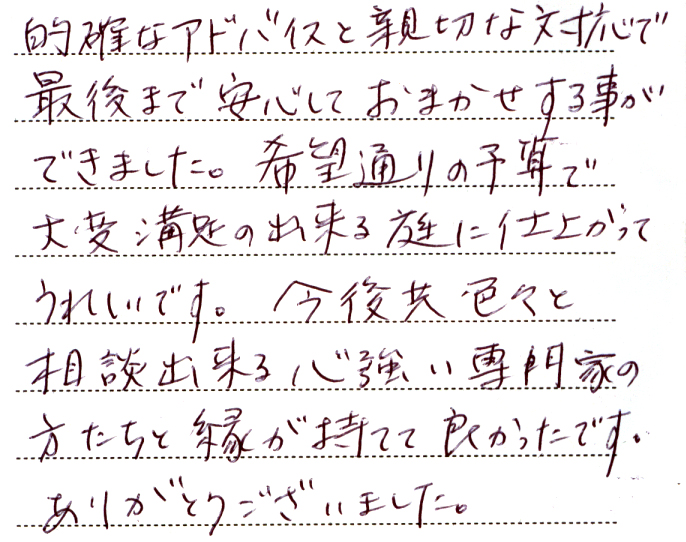 的確なアドバイスと親切な対応で
最後まで安心しておまかせする事が
できました。希望通りの予算で
大変満足の出来る庭に仕上がって
うれしいです。今後共色々と
相談出来る心強い専門家の
方たちと縁が持てて良かったです。
ありがとうございました。